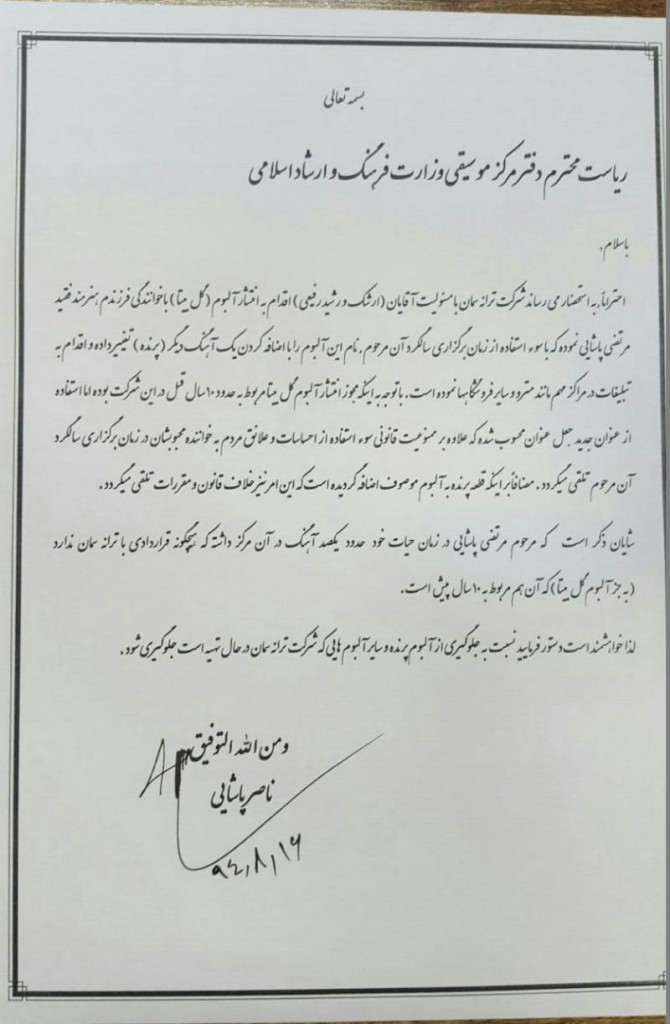 بسمه تعالی
ریاست محترم دفتر مرکز موسیقی وزارت فرهنگ و ارشاد اسلامی
باسلام,
احتراماً, به استحضار می رساند شرکت ترانه سمان با مسئولیت آقایان (ارشک و رشید رفیعی) اقدام به انتشار آلبوم (گل بیتا) با خوانندگی فرزندم هنرمند فقید
مرتضی پاشایی نموده که با سوء استفاده از زمان برگزاری سالگرد آن مرحوم, نام این آلبوم را با اضافه کردن یک آهنگ دیگر (پرنده) تغییر داده و اقدام به
تبلیغات در مراکز مهم مانند مترو و سایر فروشگاهها نموده است. با توجه به اینکه مجوز انتشار آلبوم گل بیتا مربوط به حدود ۱۰ سال قبل در این شرکت بوده اما استفاده
از عنوان جدید جعل عنوان محسوب شده که علاوه بر ممنوعیت قانونی سوء استفاده از احساسات و علائق مردم به خواننده محبوبشان در زمان برگزاری سالگرد
آن مرحوم تلقی میگردد. مضافاً بر اینکه قطعه پرنده به آلبوم موصوف اضافه گردیده است که این امر نیز خلاف قانون و مقررات تلقی میگردد.
شایان ذکر است که مرحوم مرتضی پاشایی در زمان حیات خود حدود یکصد آهنگ در آن مرکز داشته که هیچگونه قراردادی با ترانه سمان ندارد
(به جز آلبوم گل بیتا) که آن هم مربوط به ۱۰ سال پیش است.
لذا خواهشمند است دستور فرمایید نسبت به جلوگیری از آلبوم پرنده و سایر آلبوم هایی که شرکت ترانه سمان در حال تهیه است جلوگیری شود.
ومن الله التوفیق
ناصر پاشایی
۹۴,۸,۱۶